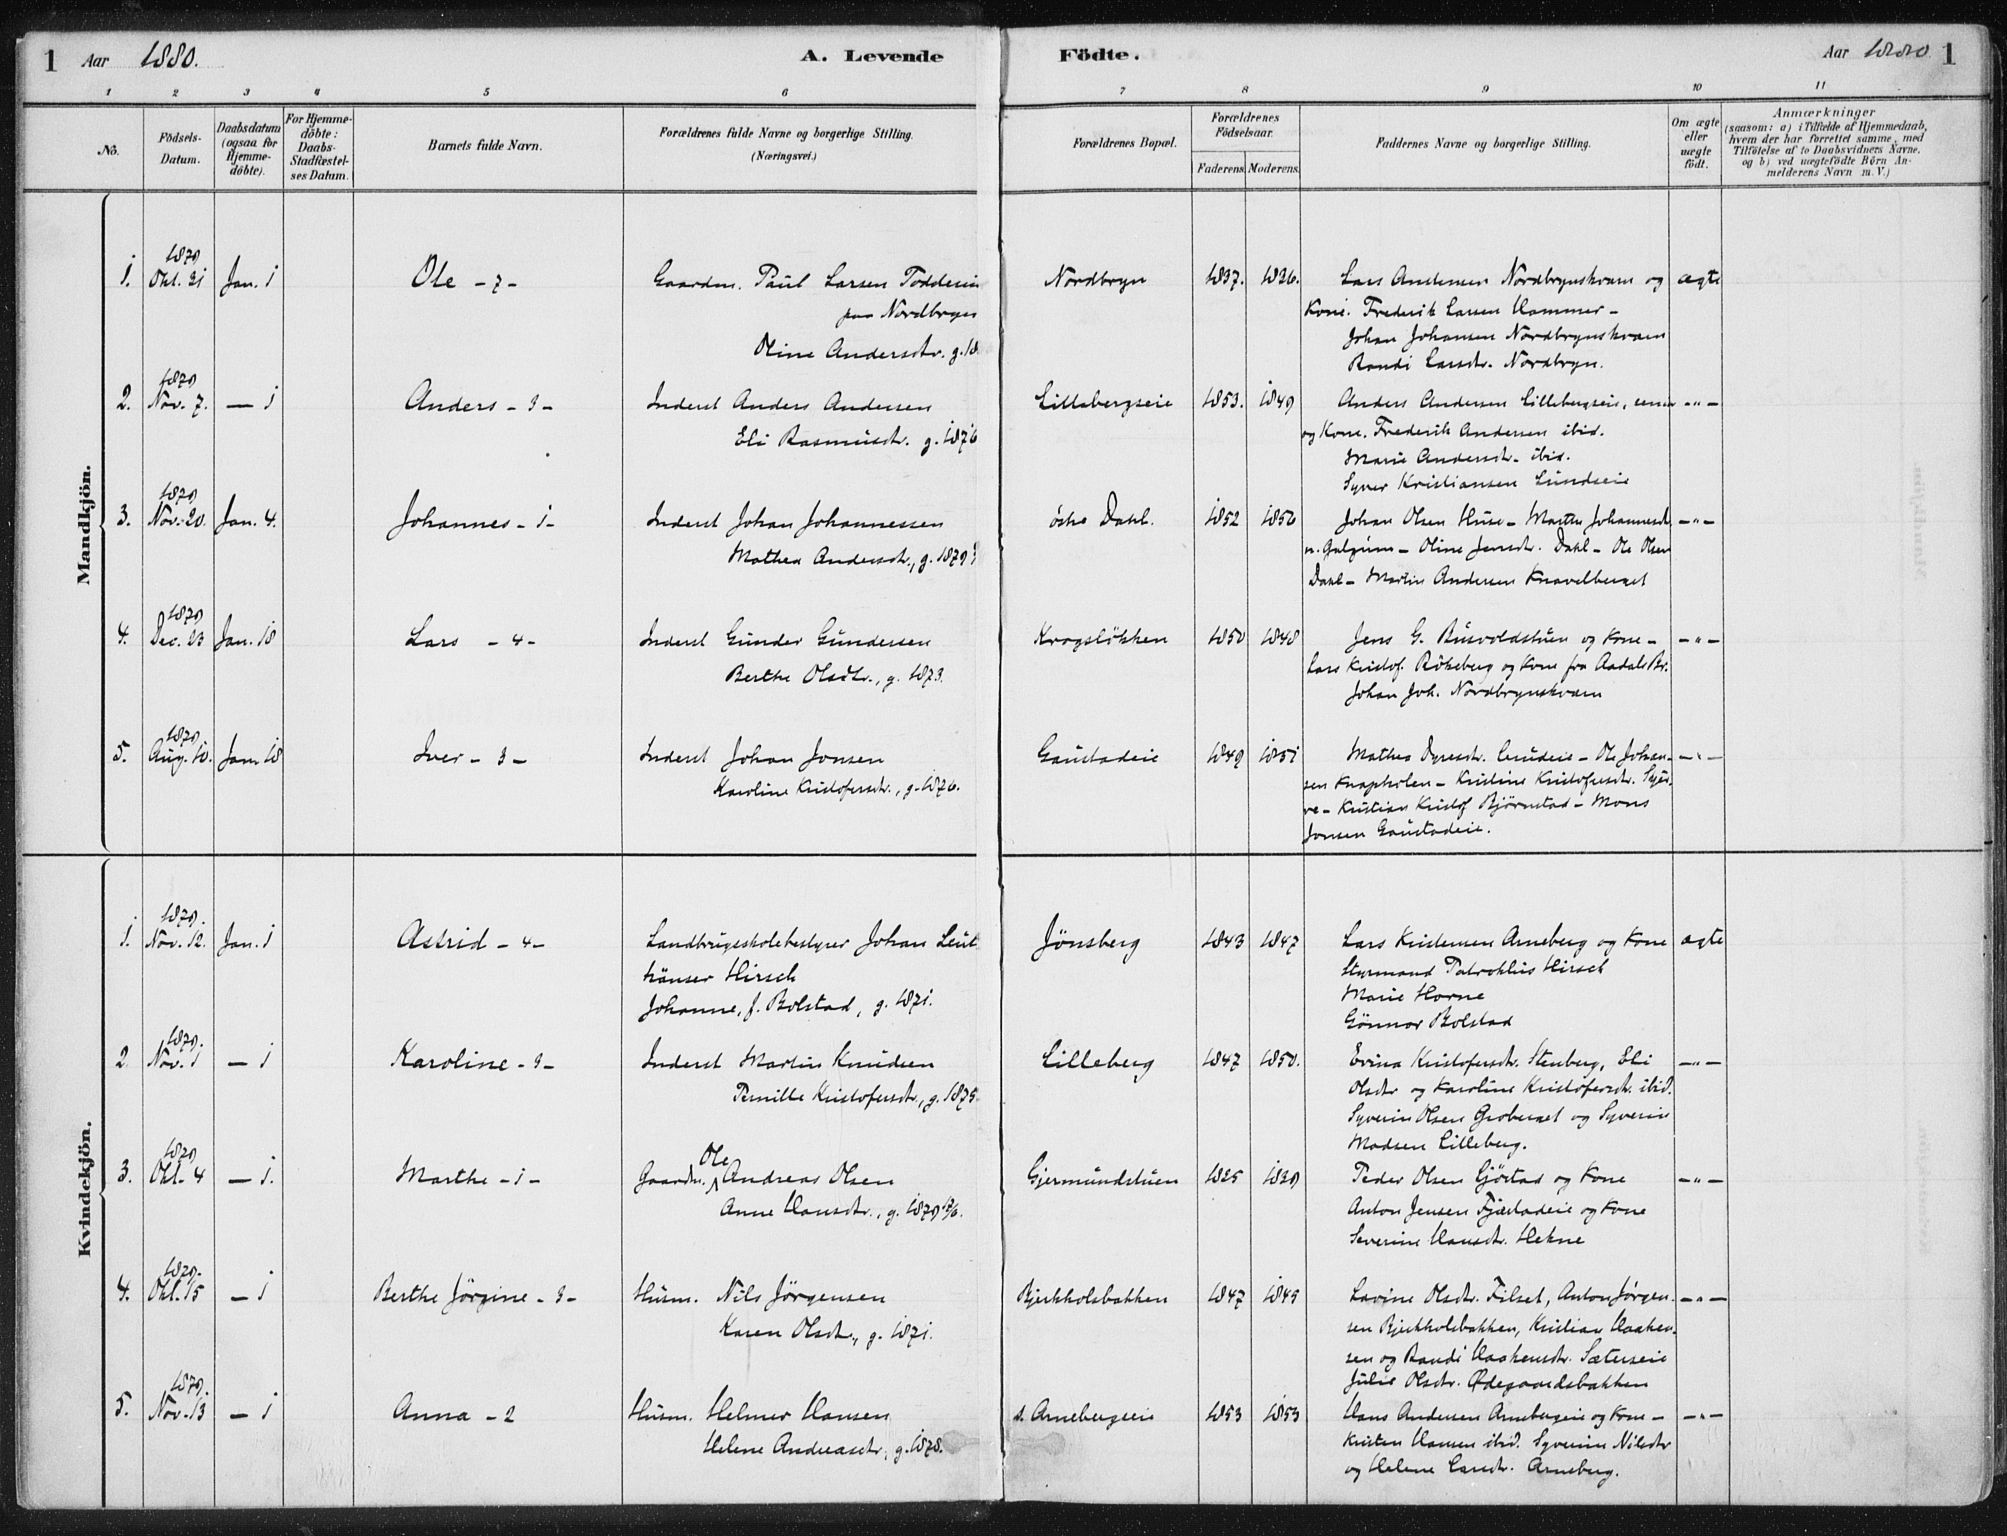 1 Aar 1880. A. Levende Födte. Aar 1880 1
1 2 3 4 5 6 7 8 9 10 11
No. Födsels-Datum. Daabsdatum (ogsaa for Hjemme-döbte). For Hjemme-döbte: Daabs-Stadfæstel-ses Datum. Barnets fulde Navn. Forældrenes fulde Navne og borgerlige Stilling. (Næringsvei.) Forældrenes Bopæl. Forældrenes Födselsaar. Faderens. Moderens. Faddernes Navne og borgerlige Stilling. Om ægte eller uægte födt. Anmærkninger (saasom: a) i Tilfælde af Hjemmedaab, hvem der har forrettet samme, med Tilföielse af to Daabsvidners Navne, og b) ved uægtefödte Börn An-melderens Navn m. V.)
Mandkjön.
1879
1. Okt. 21 Jan. 1 Ole - 7 - Gaardm. Paul Larsen Nordbryn 1837. 1836. Lars Andersen Nordbrynskvam og ægte
paa Nordbryn Kone. Frederik Larsen Hammer -
Johan Johansen Nordbrynskvam
Oline Andersdtr. g. 18 Randi Larsdtr. Nordbryn.
1879
2. Nov. 7. — 1 Anders - 3 - Inderst Anders Andersen Lillebergseie 1853. 1849 Anders Andersen Lillebergseie, senior - " -
Eli Rasmusdtr. g. 1876 og Kone. Frederik Andersen ibid.
Marie Andersdtr. ibid.
Syver Kristiansen Lundseie
1879
3. Nov. 20. Jan. 4. Johannes - 1 - Inderst Johan Johannessen östre Dahl. 1852 1850 Johan Olsen Huse - Marthe Johannesdtr. - " -
Mathea Andersdtr., g. 1879 Oline Jensdtr. Dahl - Ole Olsen
Dahl - Martin Andersen Knavelberget
1879
4. Dec. 23 Jan. 18 Lars - 4 - Inderst Gunder Gundersen Krogsløkken 1850 1848 Jens G. Busvoldstuen og Kone - - " -
Berthe Olsdtr., g. 1873. Lars Kristof. Rökeberg og Kone fra Aadals Br.
Johan Joh. Nordbrynskvam
1879
5. Aug. 10. Jan. 18 Iver - 3 - Inderst Johan Jonsen Gaustadeie 1849 1851 Mathea Dyresdtr. Lundeie - Ole Johan- - " -
Karoline Kristofersdtr., g. 1876. sen Knapholen - Kristine Kristofersdtr.
Kristian Kristof Bjørnstad - Mons
Jonsen Gaustadeie.
Kvindekjön.
1879.
1. Nov. 12. Jan. 1 Astrid - 4 - Landbrugsskolebestyrer Johan Leut Jönsberg 1843 1847 Lars Kristensen Arneberg og Kone ægte
häuser Hirsch Styrmand Patroklus Hirsch
Johanne, f. Bolstad, g. 1871. Marie Horne
Gönnor Bolstad
1879.
2. Nov. 1 — 1 Karoline - 3 - Inderst Martin Knudsen Lilleberg 1847 1850. Evina Kristofersdtr. Stenberg, Eli - " -
Pernille Kristofersdtr., g. 1875. Olsdtr og Karoline Kristofersdtr. ibid.
Syverin Olsen Groberget og Syverin
Madsen Lilleberg.
1879
3. Okt. 4 — 1. Marthe - 1 - Gaardm. Ole Andreas Olsen Gjermundstuen 1825 1839 Peder Olsen Gjörtad og Kone - " -
Anne Hansdtr., g. 1879 Anton Jensen Fjæstadeie og Kone
Severine Hansdtr. Hekne
1879.
4. Okt. 15 — 1 Berthe Jörgine - 3 - Husm. Nils Jørgensen Bjerkholsbakken 1847 1845 Lovine Olsdtr. Filset, Anton Jörgen- - " -
Karen Olsdtr., g. 1871. sen Bjerkholsbakken, Kristian Haaken-
sen og Randi Haakensdtr. Sæterseie
Julie Olsdtr. Ødegaardsbakken
1879.
5. Nov. 13 — 1 Anna - 2 Husm. Helmer Hansen s. Arnebergseie 1853 1853 Hans Andersen Arnebergseie og Kone - - " -
Helene Andreasdtr., g. 1878. Kristen Hansen ibid. Syverin Nilsdtr
og Helene Larsdtr. Arneberg.